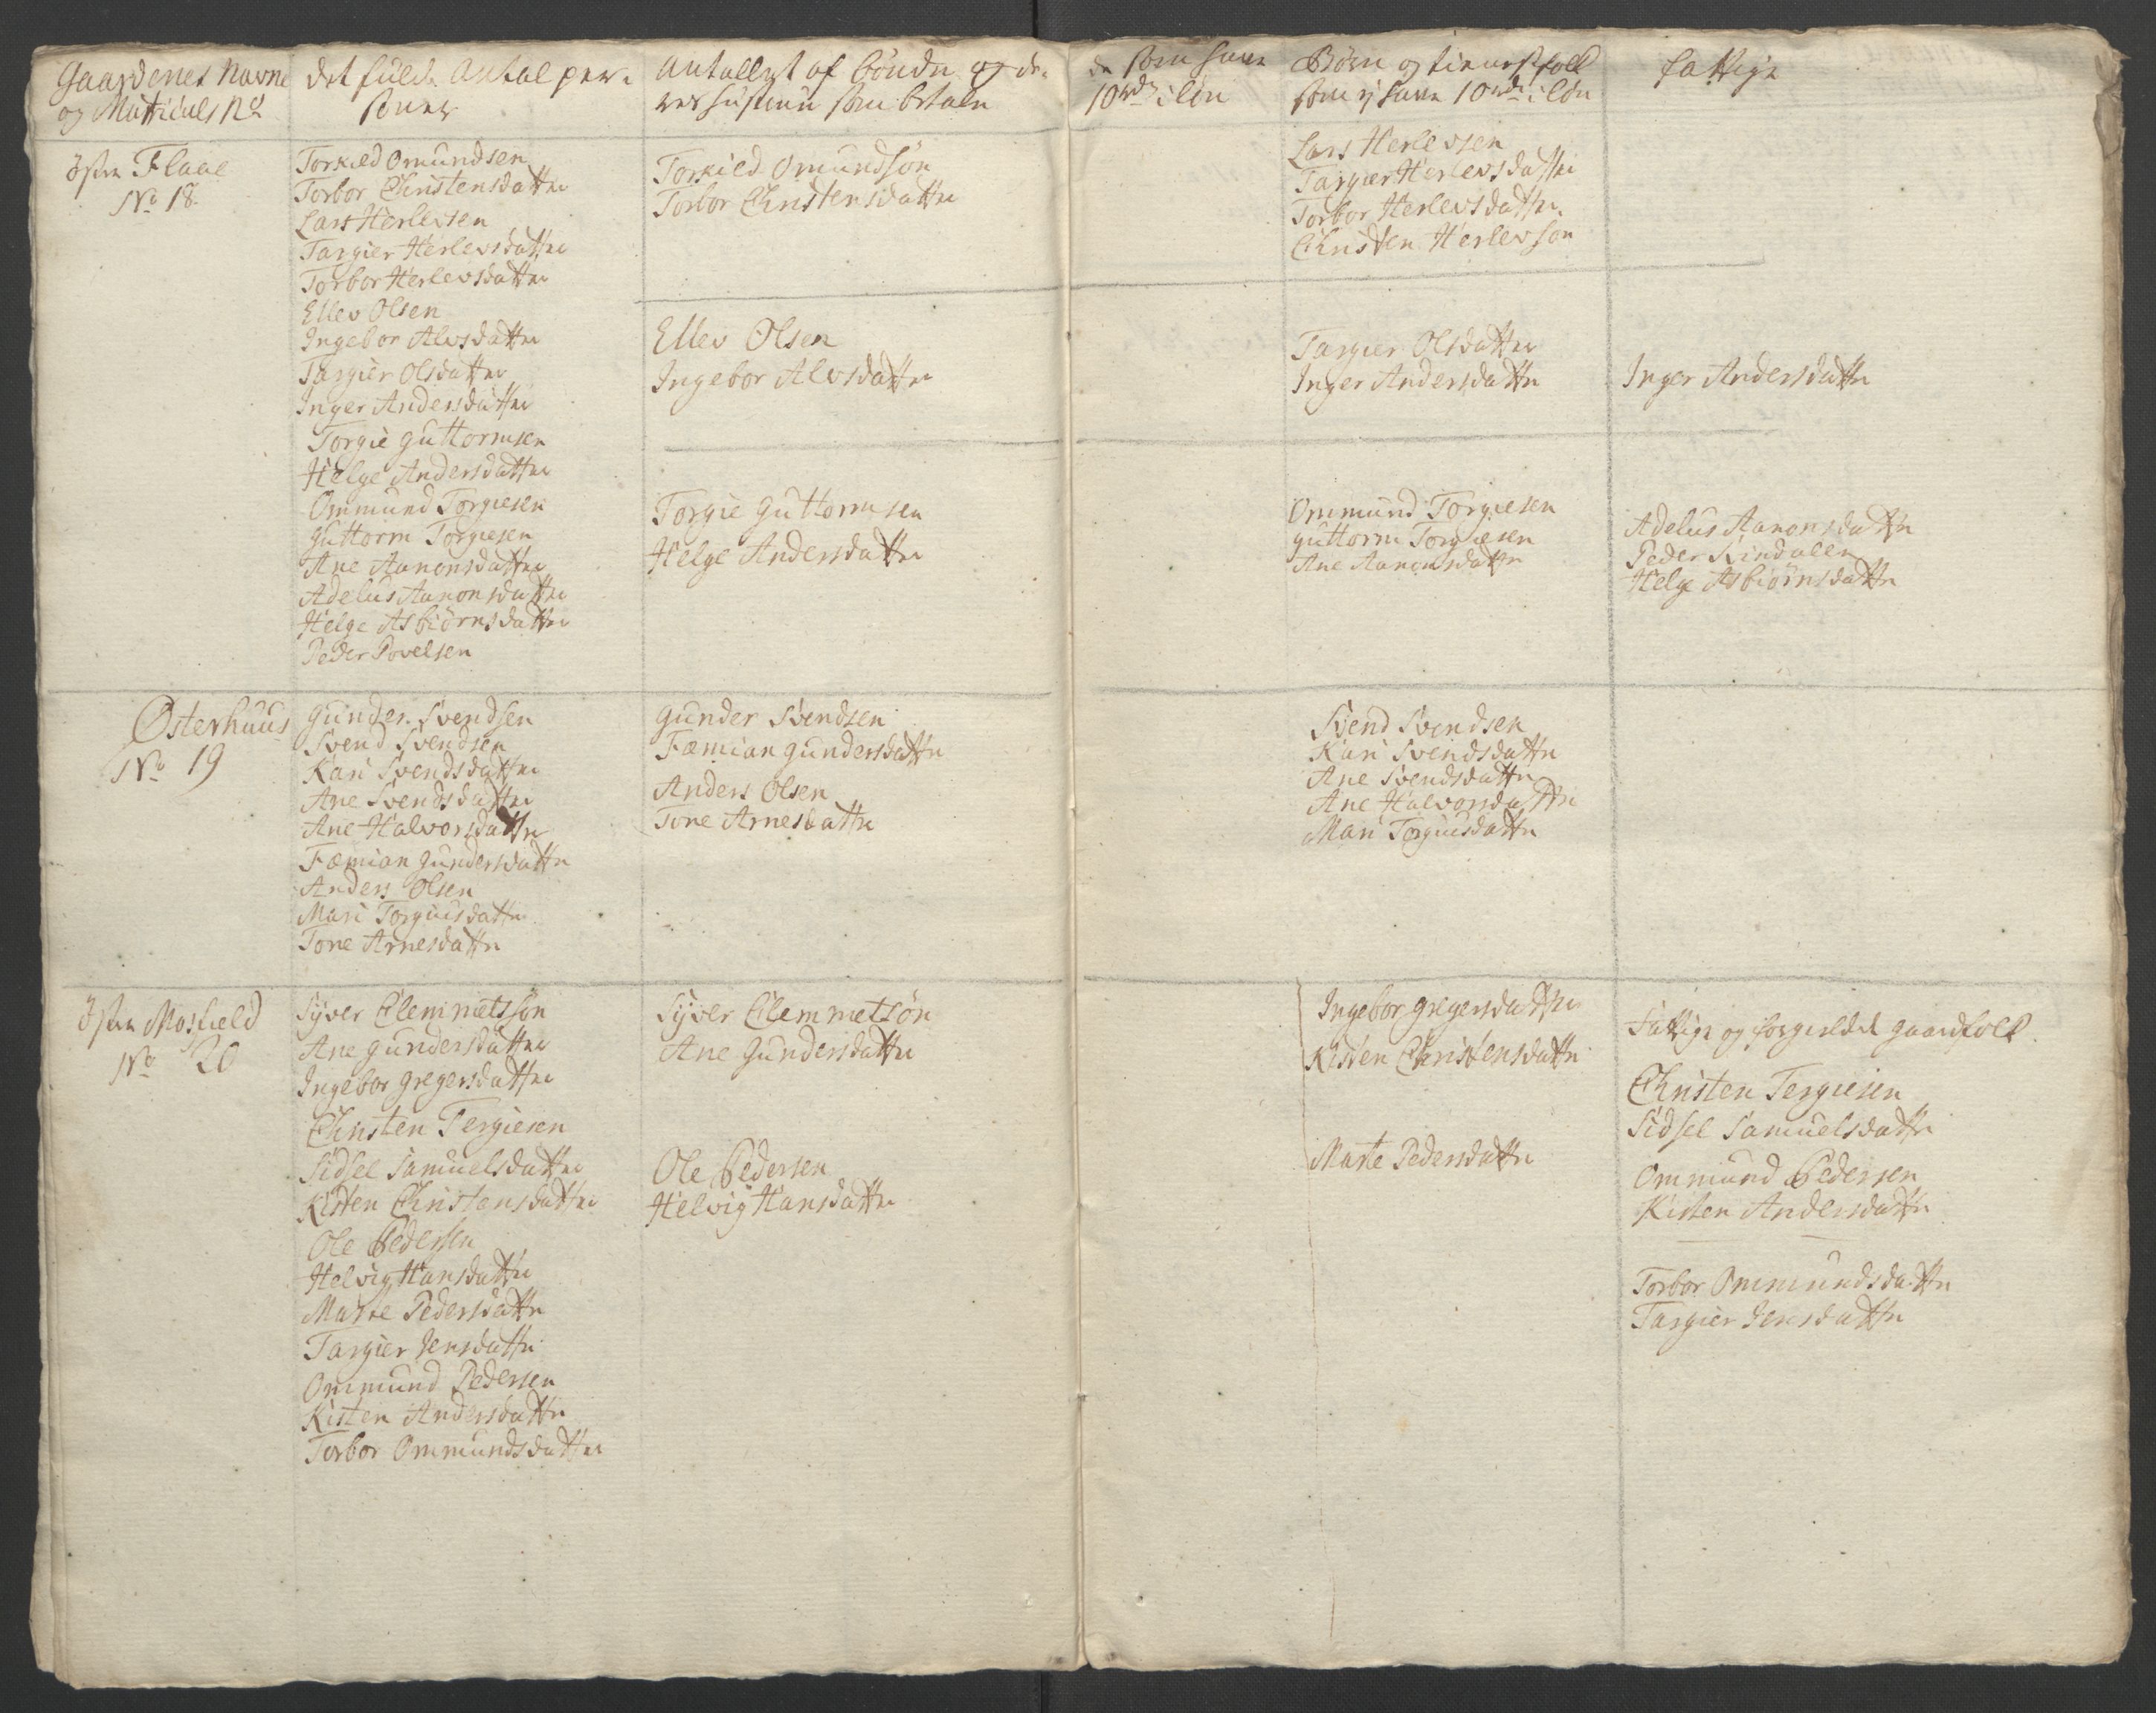 Gaardenes Navne
og Matriculs No
det fulde Antal per-
soner
Antallet af bönder og de-
res hustruer som betale
de som have
10 rd i løn
Börn og tienestfolk
som ej have 10 rd i løn
fattige
östre Flaae
No 18
Torkild Omundsen
Torbor Christensdatter
Lars Herlevsen
Targier Herlevsdatter
Torbor Herlevsdatter
Ellev Olsen
Ingebor Alvsdatter
Targier Olsdatter
Inger Andersdatter
Torgie Guttormsen
Helge Andersdatter
Ommund Torgiesen
Guttorm Torgiesen
Ane Aanonsdatter
Adelus Aanonsdatter
Helge Asbiörnsdatter
Peder Povelsen
Torkild Omundsön
Torbor Christensdatter
Ellev Olsen
Ingebor Alvsdatter
Torgie Guttormsen
Helge Andersdatter
Lars Herlevsen
Targier Herlevsdatter
Torbor Herlevsdatter
Christen Herlevson
Targier Olsdatter
Inger Andersdatter
Ommund Torgiesen
Guttorm Torgiesen
Ane Aanonsdatter
Inger Andersdatter
Adelus Aanonsdatter
Peder Rindalen
Helge Asbiörnsdatter
Østerhuus
No 19
Gunder Svendsen
Svend Svendsen
Kari Svendsdatter
Ane Svendsdatter
Ane Halvorsdatter
Fæmian Gundersdatter
Anders Olsen
Mari Torgiusdatter
Tone Arnesdatter
Gunder Svendsen
Fæmian Gundersdatter
Anders Olsen
Tone Arnesdatter
Svend Svendsen
Kari Svendsdatter
Ane Svendsdatter
Ane Halvorsdatter
Mari Torgiusdatter
östre Mosfield
No 20
Syver Clemmetsson
Ane Gundersdatter
Ingebor Gregersdatter
Christen Tergiesen
Sidsel Samuelsdatter
Kisten Christensdatter
Ole Pedersen
Helvig Hansdatter
Marte Pedersdatter
Targier Jensdatter
Ommund Pedersen
Kisten Andersdatter
Torbor Ommundsdatter
Syver Clemmetsön
Ane Gundersdatter
Ole Pedersen
Helvig Hansdatter
Ingebor Gregersdatter
Kisten Christensdatter
Marte Pedersdatter
Fattige og forgieldet gaardfolk
Christen Tergiesen
Sidsel Samuelsdatter
Ommund Pedersen
Kisten Andersdatter
Torbor Ommundsdatter
Targier Jensdatter